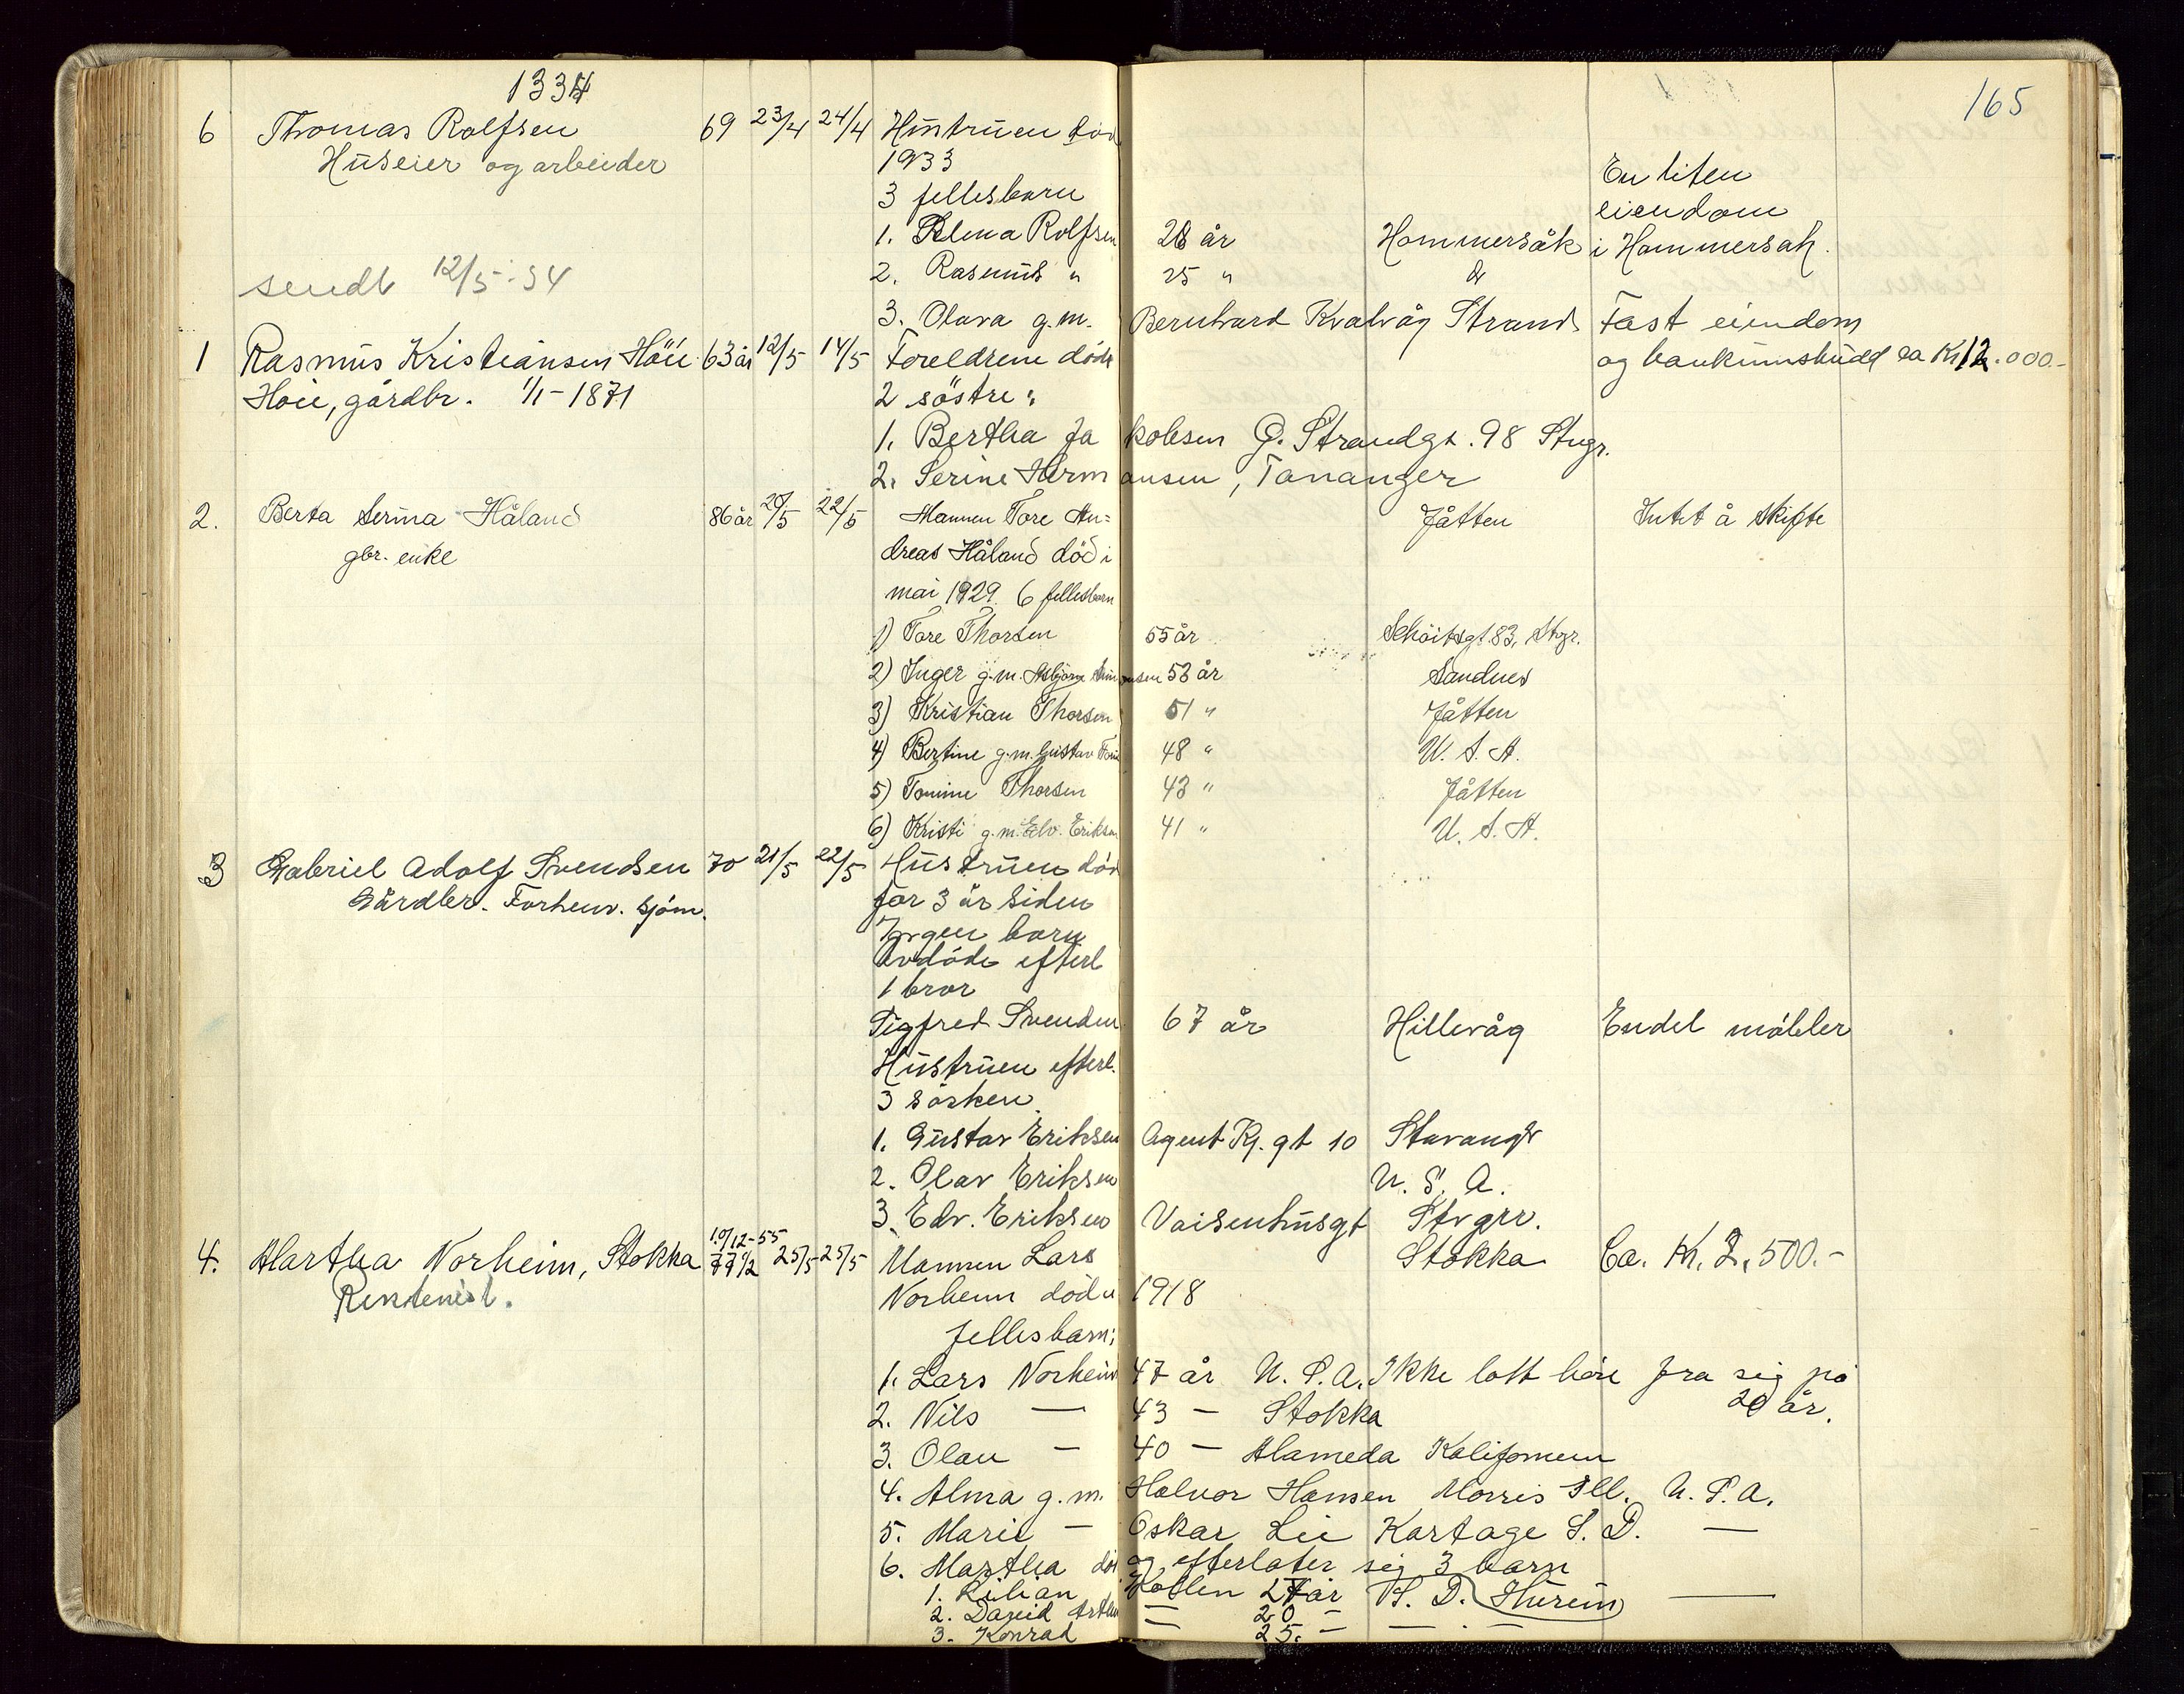 1334
165
6 Thomas Rolfsen 69 23/4 24/4 Hustruen död
Huseier og arbeider 1933
En liten
3 fellesbarn eiendom
1. Selma Rolfsen 28 år Hommersåk i Hommersåk.
sendt 12/5-34 2. Rasmus " 25 " do
3. Olava g.m. Bernhard Kvalvåg Strand Fast eiendom
1 Rasmus Kristiansen Höie 63 år 12/5 14/5 Foreldrene döde og bankinnskudd ca Kr 12.000.-
Höie, gårdbr. 1/1-1871 2 söstre:
1. Bertha Jakobsen Ö. Strandgt. 98 Stvgr.
2. Serine Hermansen, Tananger
2. Berta Serina Håland 86 år 20/5 22/5 Mannen Tore An= Jåtten Intet å skifte
gbr. enke dreas Håland död i
mai 1929. 6 fellesbarn
1) Tore Thorsen 55 år Schöitzgt. 83, Stvgr.
2) Inger g.m. Asbjörn Simonsen 53 år Sandnes
3) Kristian Thorsen 51 " Jåtten
4) Bertine g.m. Gustav 48 " U.S.A.
5) Tomine Thorsen 43 " Jåtten
6) Kristi g.m. Edv. Eriksen 41 " U.S.A.
3 Gabriel Adolf Svendsen 70 21/5 22/5 Hustruen död
Gårdbr. Forhenv. sjöm. for 3 år siden
Ingen barn
Avdöde efterl
1 bror
Sigfred Svendsen 67 år Hillevåg Endel möbler
Hustruen efterl.
3 sösken.
1. Gustav Eriksen Agent Kj. gt 10 Stavanger
2. Olav Eriksen U.S.A.
3. Edv. Eriksen Vaisenhusgt Stvgr.
10/12-55
4. Martha Norheim, Stokka 77 1/2 25/5 25/5 Mannen Lars Stokka Ca. Kr. 2.500.-
Rentenist. Norheim död 1918
Fellesbarn:
1. Lars Norheim 47 år U.S.A. Ikke latt höre fra sig på
20 år.
2. Nils — 43 — Stokka
3. Olau — 40 — Alameda Kalifornien
4. Alma g.m. Halvor Hansen Morris Ill. U.S.A.
5. Marie — Oskar Lie Kartage S.D. —
6. Martha död og efterlater sig 3 barn
1. Lilian 27 år S.D. Hurein —
2. David — 20 —
3. Konrad — 25. — — . —